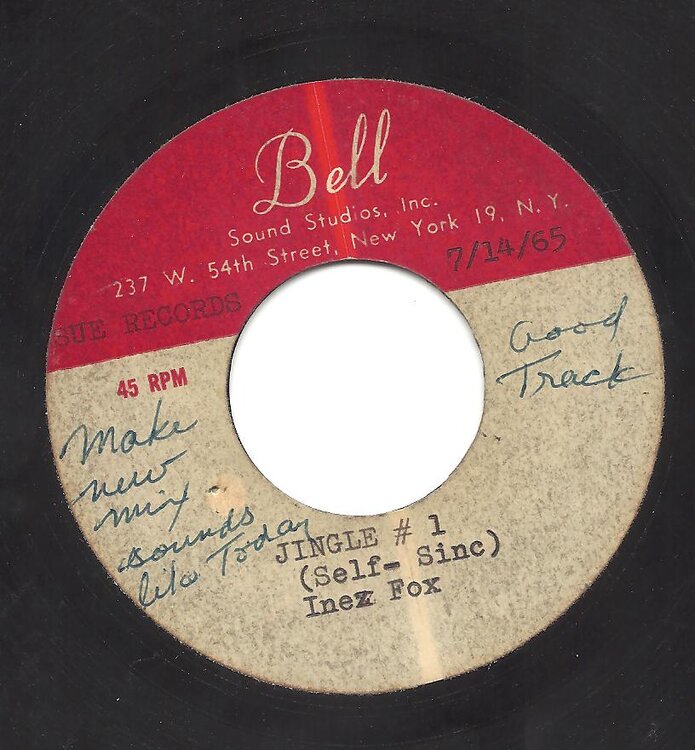 Bell
Sound Studios, Inc.
237 W. 54th Street, New York 19, N.Y.
7/14/65
SUE RECORDS
45 RPM
Good
Track
Make
new
mix
sounds
like Today
JINGLE # 1
(Self- Sinc)
Inez Fox